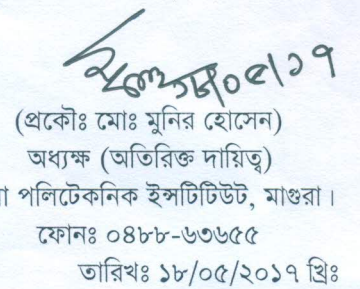 ১৮/০৫/১৭
(প্রকৌঃ মোঃ মুনির হোসেন)
অধ্যক্ষ (অতিরিক্ত দায়িত্ব)
পলিটেকনিক ইন্সটিটিউট, মাগুরা।
ফোনঃ ০৪৮৮-৬৩৬৫৫
তারিখঃ ১৮/০৫/২০১৭ খ্রিঃ